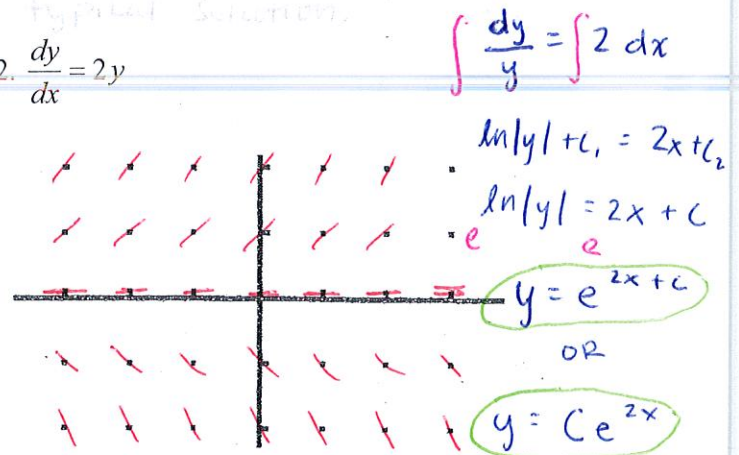 typical solution.
2. dy/dx = 2y
∫ dy/y = ∫ 2 dx
ln|y| + C₁ = 2x + C₂
ln|y| = 2x + C
e e
y = e^(2x + C)
OR
y = Ce^(2x)